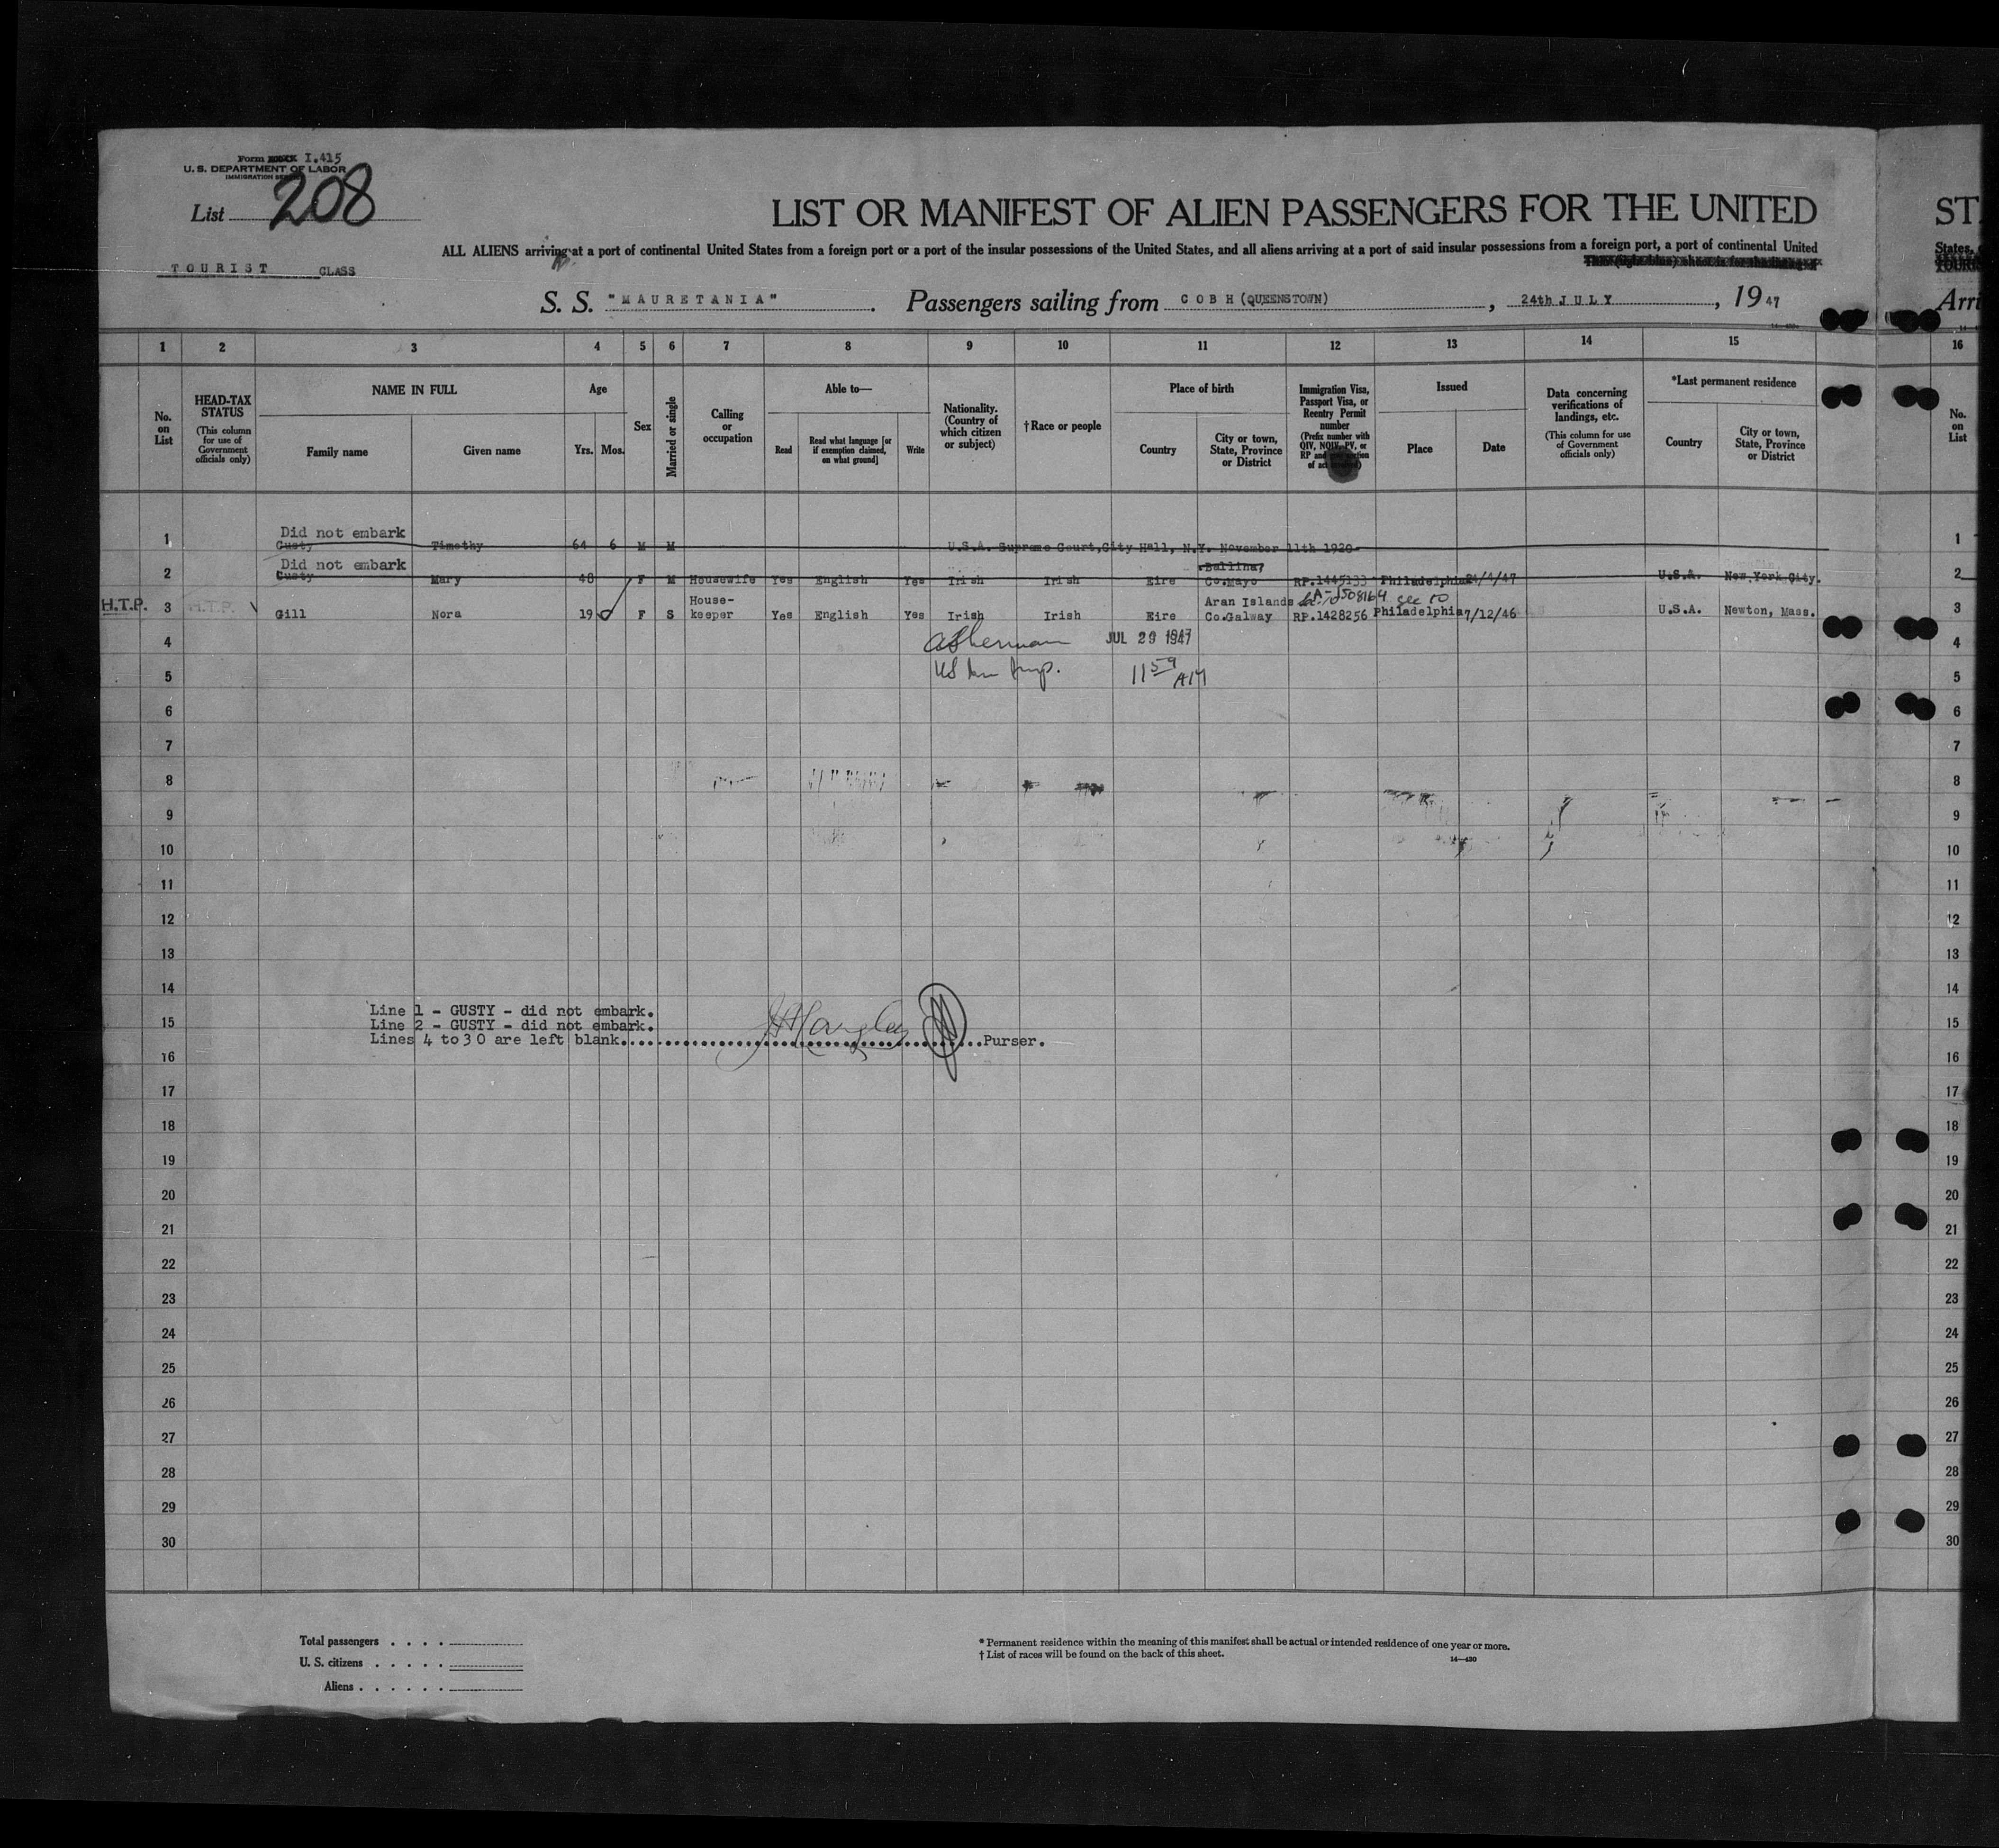 Form I.415
U. S. DEPARTMENT OF LABOR
IMMIGRATION
List 208
LIST OR MANIFEST OF ALIEN PASSENGERS FOR THE UNITED
ST
ALL ALIENS arriving at a port of continental United States from a foreign port or a port of the insular possessions of the United States, and all aliens arriving at a port of said insular possessions from a foreign port, a port of continental United
States,
TOURIST CLASS
S. S. "MAURETANIA" Passengers sailing from COBH (QUEENSTOWN), 24th JULY, 1947
Arri
1 2 3 4 5 6 7 8 9 10 11 12 13 14 15 16
No. on List
HEAD-TAX STATUS
(This column for use of Government officials only)
NAME IN FULL
Family name
Given name
Age
Yrs.
Mos.
Sex
Married or single
Calling or occupation
Able to—
Read
Read what language [or if exemption claimed, on what ground]
Write
Nationality. (Country of which citizen or subject)
†Race or people
Place of birth
Country
City or town, State, Province or District
Immigration Visa, Passport Visa, or Reentry Permit number
(Prefix number with QIV, NQIV, PV, or RP and
Issued
Place
Date
Data concerning verifications of landings, etc.
(This column for use of Government officials only)
*Last permanent residence
Country
City or town, State, Province or District
No. on List
Did not embark
1 Gusty Timothy 64 6 M M U.S.A. Supreme Court, City Hall, N.Y. November 11th 1920 1
Did not embark Ballina,
2 Gusty Mary 48 F M Housewife Yes English Yes Irish Irish Eire Co.Mayo RP.1445133 Philadelphia 24/4/47 U.S.A. New York City. 2
House- Aran Islands A-5508164 see 10
H.T.P. 3 H.T.P. Gill Nora 19 F S keeper Yes English Yes Irish Irish Eire Co.Galway RP.1428256 Philadelphia 7/12/46 U.S.A. Newton, Mass. 3
4 JUL 29 1947 4
5 US Imm Insp. 11 59 AM 5
6 6
7 7
8 8
9 9
10 10
11 11
12 12
13 13
14 14
Line 1 - GUSTY - did not embark.
15 Line 2 - GUSTY - did not embark. 15
Lines 4 to 30 are left blank. Purser.
16 16
17 17
18 18
19 19
20 20
21 21
22 22
23 23
24 24
25 25
26 26
27 27
28 28
29 29
30 30
Total passengers . . . .
U. S. citizens . . . . .
Aliens . . . . . .
* Permanent residence within the meaning of this manifest shall be actual or intended residence of one year or more.
† List of races will be found on the back of this sheet.
14—430